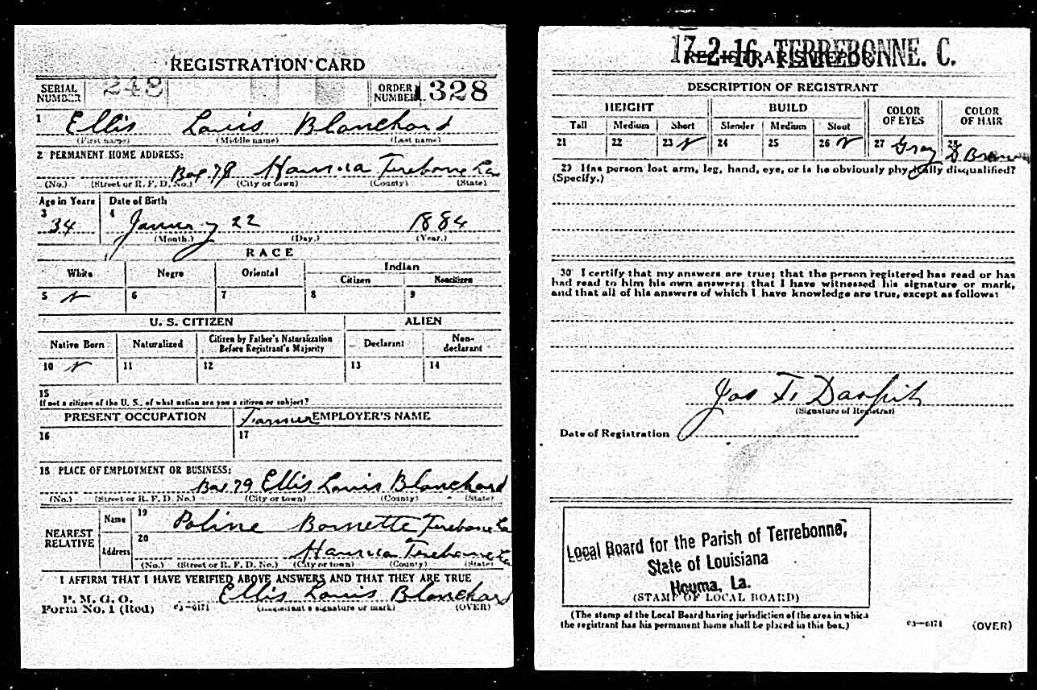 REGISTRATION CARD
SERIAL NUMBER 248 ORDER NUMBER 1328
1 Ellis Louis Blanchard
(First name) (Middle name) (Last name)
2 PERMANENT HOME ADDRESS:
Box 79 Houma Terebone La
(No.) (Street or R. F. D. No.) (City or town) (County) (State)
Age in Years Date of Birth
3 34 4 January 22 1884
(Month.) (Day.) (Year.)
RACE
White Negro Oriental Indian
Citizen Noncitizen
5 6 7 8 9
U. S. CITIZEN ALIEN
Native Born Naturalized Citizen by Father's Naturalization Before Registrant's Majority Declarant Non-declarant
10 11 12 13 14
15
If not a citizen of the U. S., of what nation are you a citizen or subject?
PRESENT OCCUPATION Farmer EMPLOYER'S NAME
16 17
18 PLACE OF EMPLOYMENT OR BUSINESS:
Box 79 Ellis Louis Blanchard
(No.) (Street or R. F. D. No.) (City or town) (County) (State)
NEAREST RELATIVE
Name 19 Poline Terebone La
Address 20 Terebone La
(No.) (Street or R. F. D. No.) (City or town) (County) (State)
I AFFIRM THAT I HAVE VERIFIED ABOVE ANSWERS AND THAT THEY ARE TRUE
P. M. G. O.
Form No. 1 (Red) 03—6171 Ellis Louis Blanchard
(Registrant's signature or mark) (OVER)
17-2-16 TERREBONNE. C.
REGISTRAR'S REPORT
DESCRIPTION OF REGISTRANT
HEIGHT BUILD COLOR OF EYES COLOR OF HAIR
Tall Medium Short Slender Medium Stout
21 22 23 24 25 26 27 Gray 28 D Brown
29 Has person lost arm, leg, hand, eye, or is he obviously physically disqualified?
(Specify.)
30 I certify that my answers are true; that the person registered has read or has
had read to him his own answers; that I have witnessed his signature or mark,
and that all of his answers of which I have knowledge are true, except as follows:
Jos
(Signature of Registrar)
Date of Registration
Local Board for the Parish of Terrebonne,
State of Louisiana
Houma, La.
(STAMP OF LOCAL BOARD)
(The stamp of the Local Board having jurisdiction of the area in which
the registrant has his permanent home shall be placed in this box.)
03—6171 (OVER)